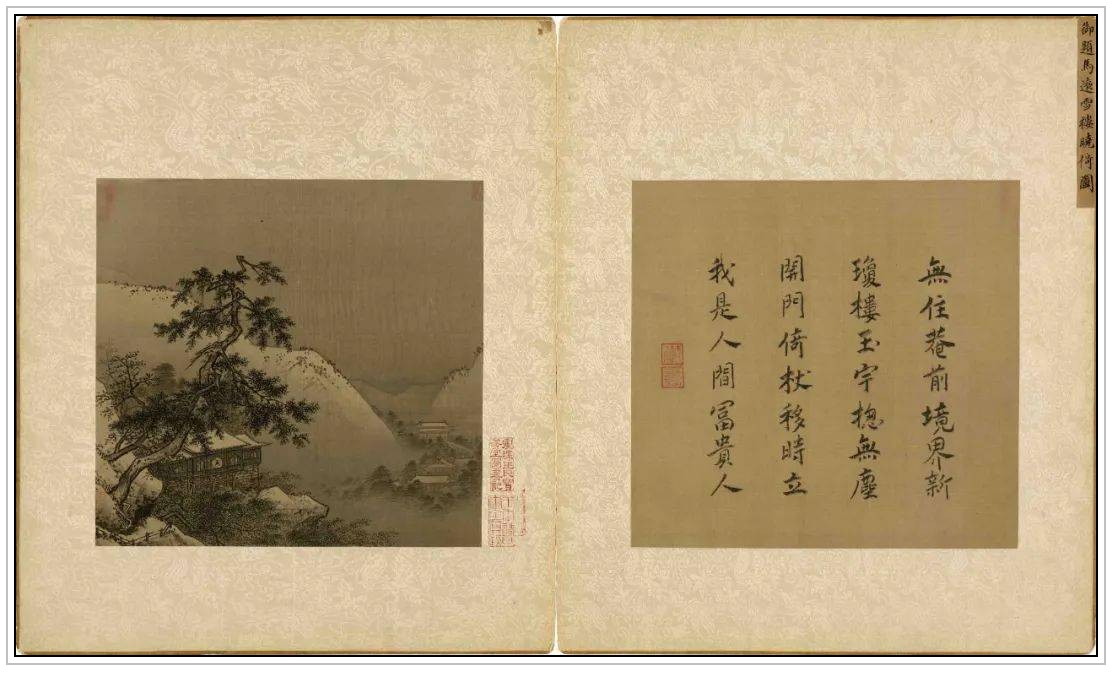 御題馬遠雪樓曉倚圖
無住菴前境界新
瓊樓玉宇揔無塵
開門倚杖移時立
我是人間冨貴人